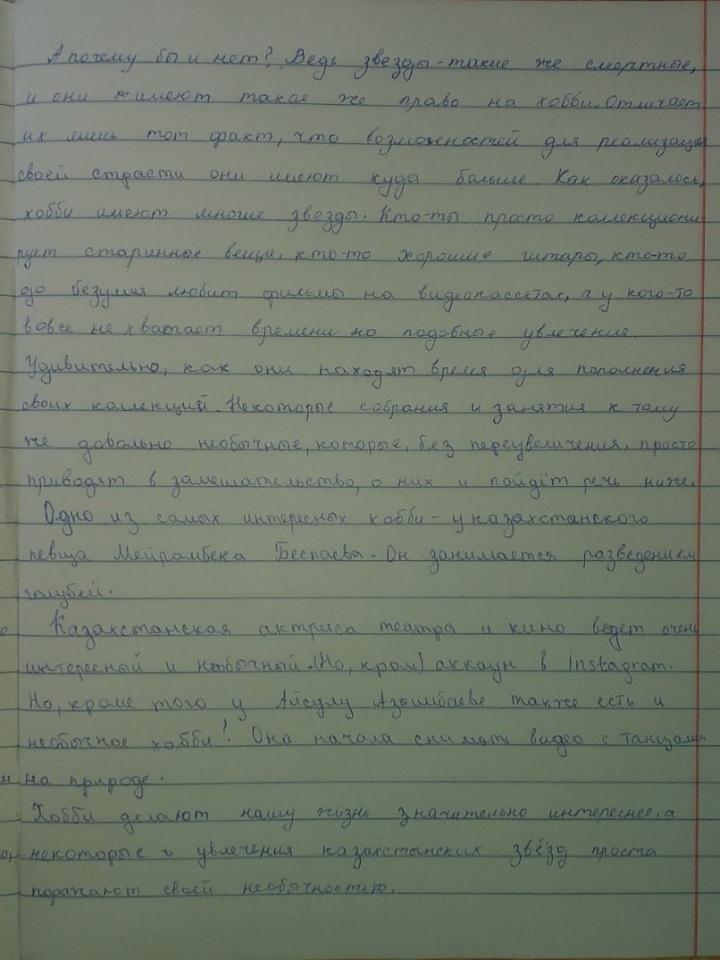 А почему бы и нет? Ведь звезды-такие же смертные,
и они имеют такое же право на хобби. Отличает
их лишь тот факт, что возможностей для реализации
своей страсти они имеют куда больше. Как оказалось,
хобби имеют многие звезды. Кто-ты просто коллекциони
рует старинное вещи, кто-то хорошие гитары, кто-то
до безумия любит фильмы на видеокассетах, а у кого-то
вовсе не хватает времени но подобные увлечение.
Удивительно, как они находят время для пополнения
своих коллекций. Некоторые собрания и занятия к тому
же довольно необычные, которые, без переувеличения, просто
приводят в замешательство, о них и пойдёт речь ниже.
Одно из самых интересных хобби - у казахстанского
певца Мейрамбека Беспаева. Он занимается разведением
голубей.
Казахстанская актриса театра и кино ведет очень
интересный и необычный. (Но, кром) аккаун в instagram.
Но, кроме того у Айсулу Азимбаеве также есть и
необычное хобби! Она начала снимать видео с танцами
на природе.
Хобби делают нашу жизнь значительно интереснее, а
некоторые увлечения казахстанских звёзд проста
поражают своей необычностью.